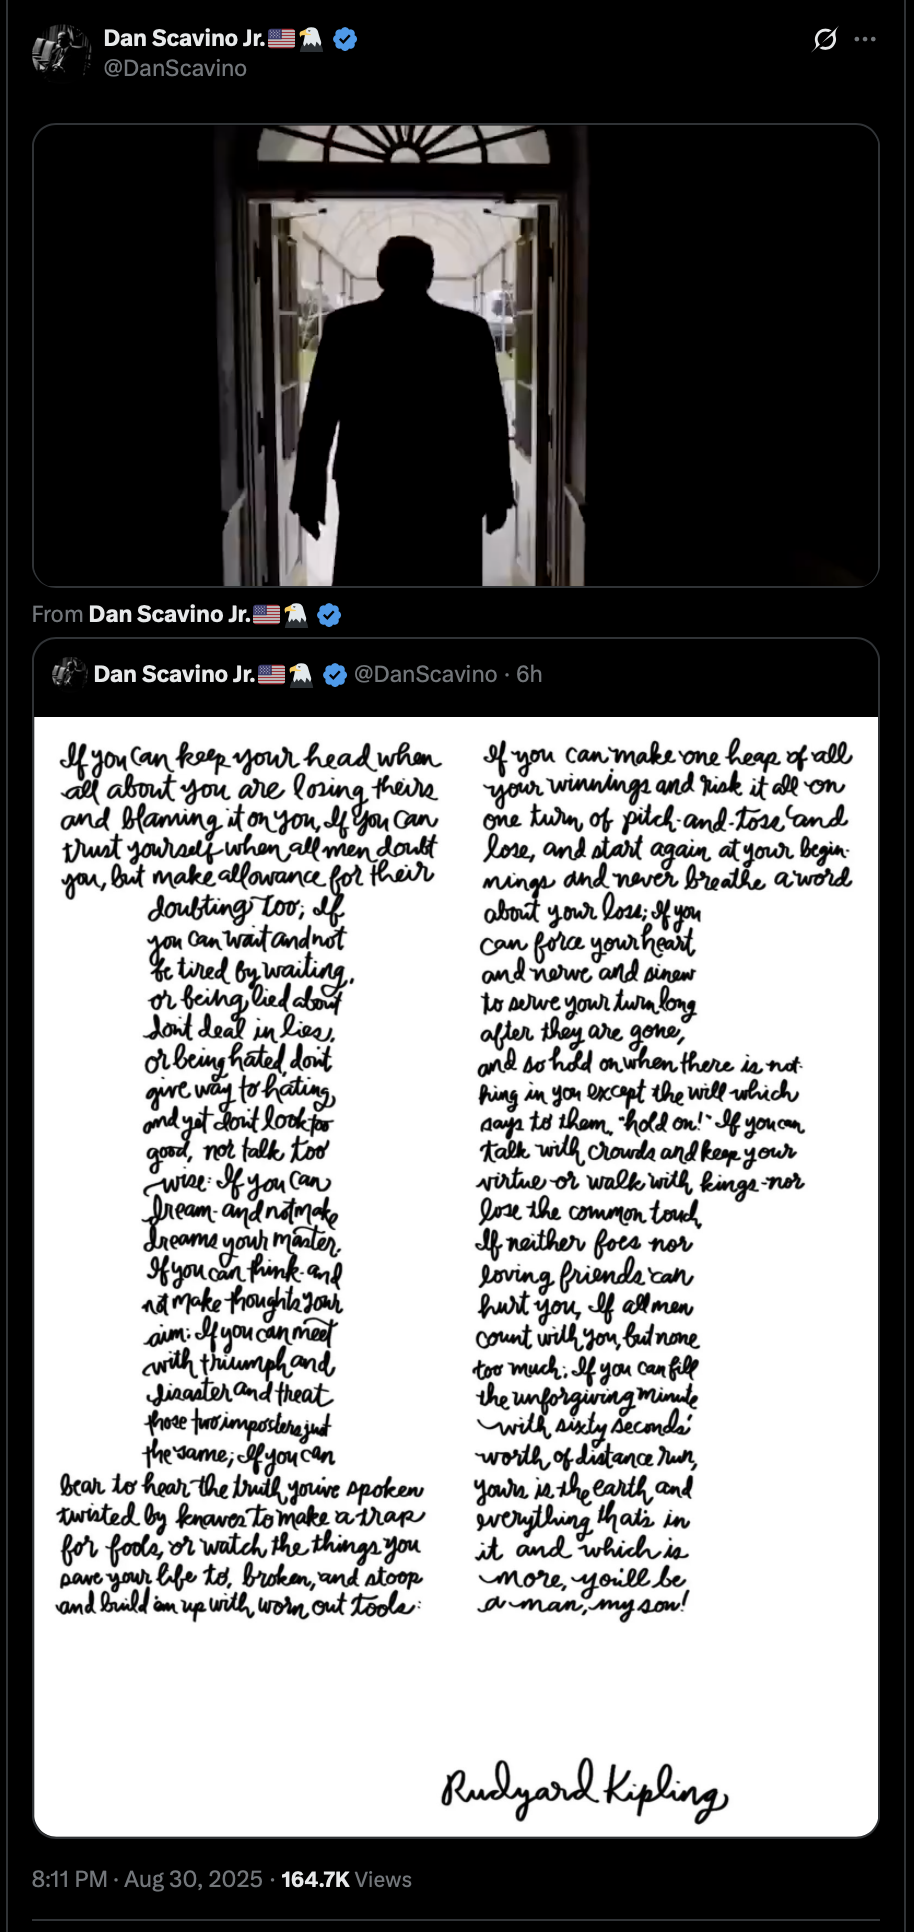 Dan Scavino Jr.🇺🇸🦅
@DanScavino
From Dan Scavino Jr.🇺🇸🦅
Dan Scavino Jr.🇺🇸🦅 @DanScavino · 6h
If you can keep your head when
all about you are losing theirs
and blaming it on you, If you can
trust yourself when all men doubt
you, but make allowance for their
doubting too; If
you can wait and not
be tired by waiting,
or being lied about
don't deal in lies,
or being hated, don't
give way to hating,
and yet don't look too
good, nor talk too
wise: If you can
dream-and not make
dreams your master;
If you can think-and
not make thoughts your
aim; If you can meet
with triumph and
disaster and treat
those two imposters just
the same; If you can
bear to hear the truth you've spoken
twisted by knaves to make a trap
for fools, or watch the things you
gave your life to, broken, and stoop
and build 'em up with worn out tools:
If you can make one heap of all
your winnings and risk it all on
one turn of pitch-and-toss, and
lose, and start again at your begin-
nings and never breathe a word
about your loss; If you
can force your heart
and nerve and sinew
to serve your turn long
after they are gone,
and so hold on when there is not-
hing in you except the will which
says to them, "hold on!" If you can
talk with crowds and keep your
virtue-or walk with kings-nor
lose the common touch,
If neither foes nor
loving friends can
hurt you, If all men
count with you, but none
too much; If you can fill
the unforgiving minute
with sixty seconds'
worth of distance run,
yours is the earth and
everything that's in
it and which is
more, you'll be
a man, my son!
Rudyard Kipling
8:11 PM · Aug 30, 2025 · 164.7K Views